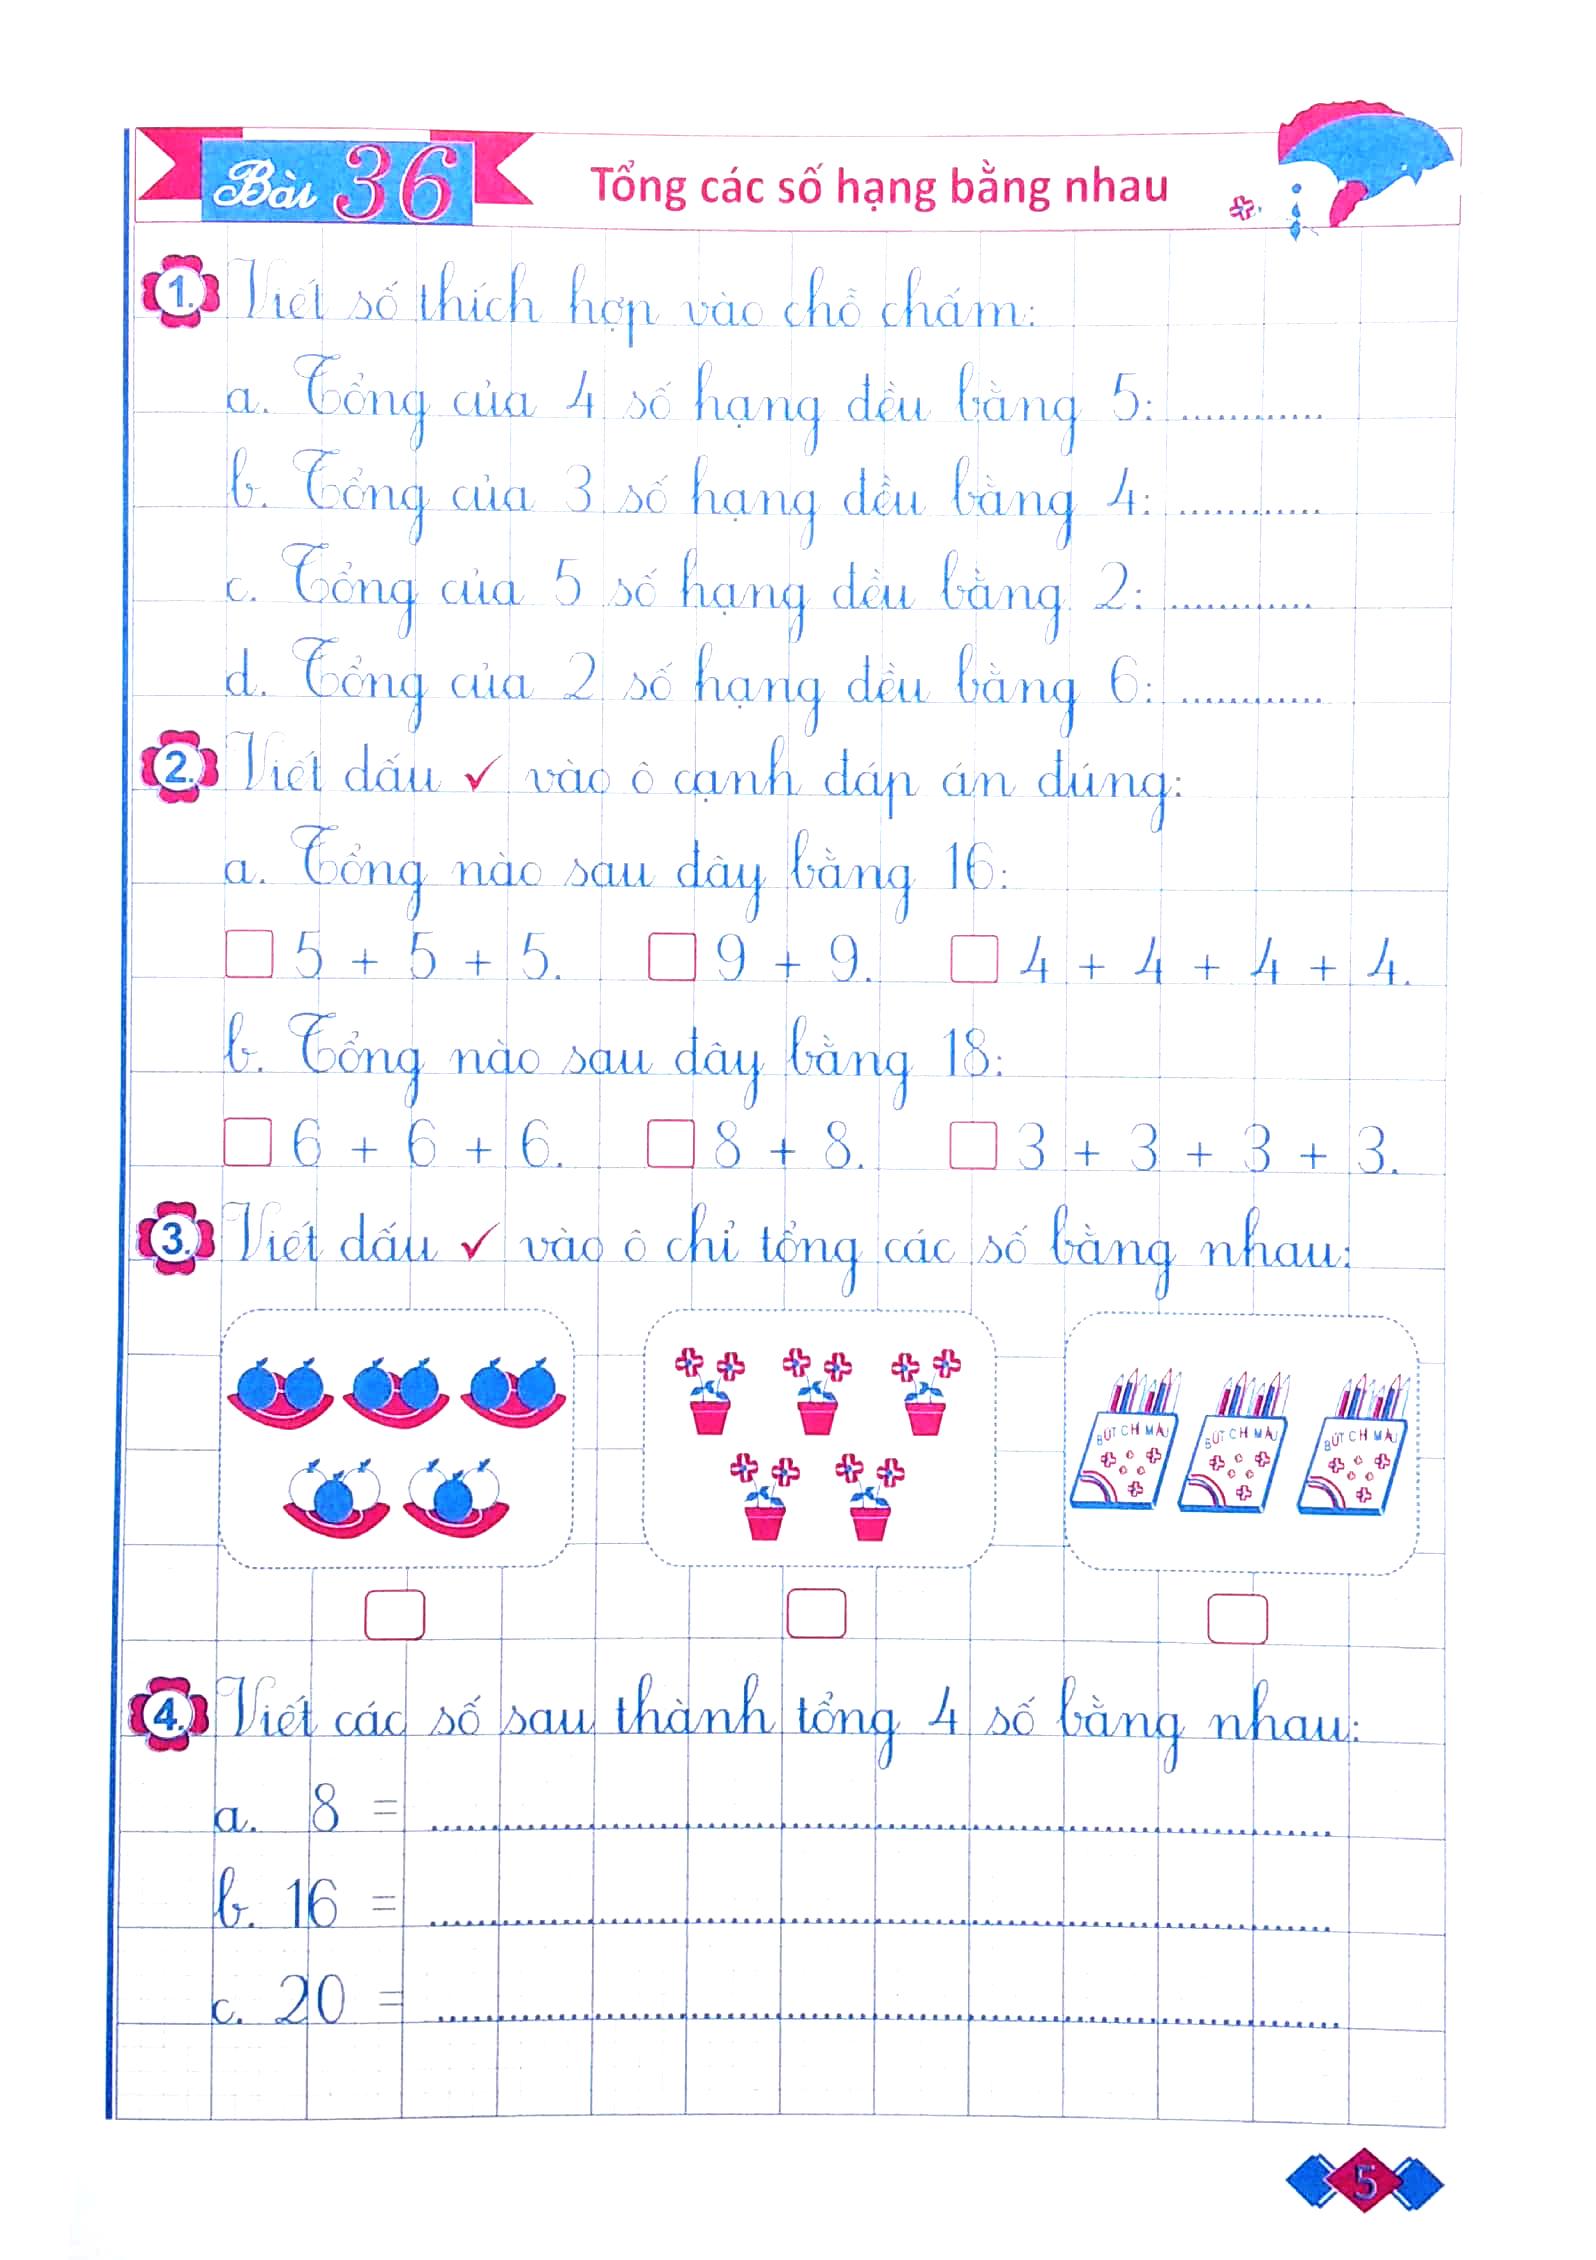 Bài 36
Tổng các số hạng bằng nhau
1. Viết số thích hợp vào chỗ chấm:
a. Tổng của 4 số hạng đều bằng 5: ............
b. Tổng của 3 số hạng đều bằng 4: ............
c. Tổng của 5 số hạng đều bằng 2: ............
d. Tổng của 2 số hạng đều bằng 6: ............
2. Viết dấu ✓ vào ô cạnh đáp án đúng:
a. Tổng nào sau đây bằng 16:
☐ 5 + 5 + 5. ☐ 9 + 9. ☐ 4 + 4 + 4 + 4.
b. Tổng nào sau đây bằng 18:
☐ 6 + 6 + 6. ☐ 8 + 8. ☐ 3 + 3 + 3 + 3.
3. Viết dấu ✓ vào ô chỉ tổng các số bằng nhau:
BÚT CHÌ MÀU BÚT CHÌ MÀU BÚT CHÌ MÀU
4. Viết các số sau thành tổng 4 số bằng nhau:
a. 8 = ............
b. 16 = ............
c. 20 = ............
5